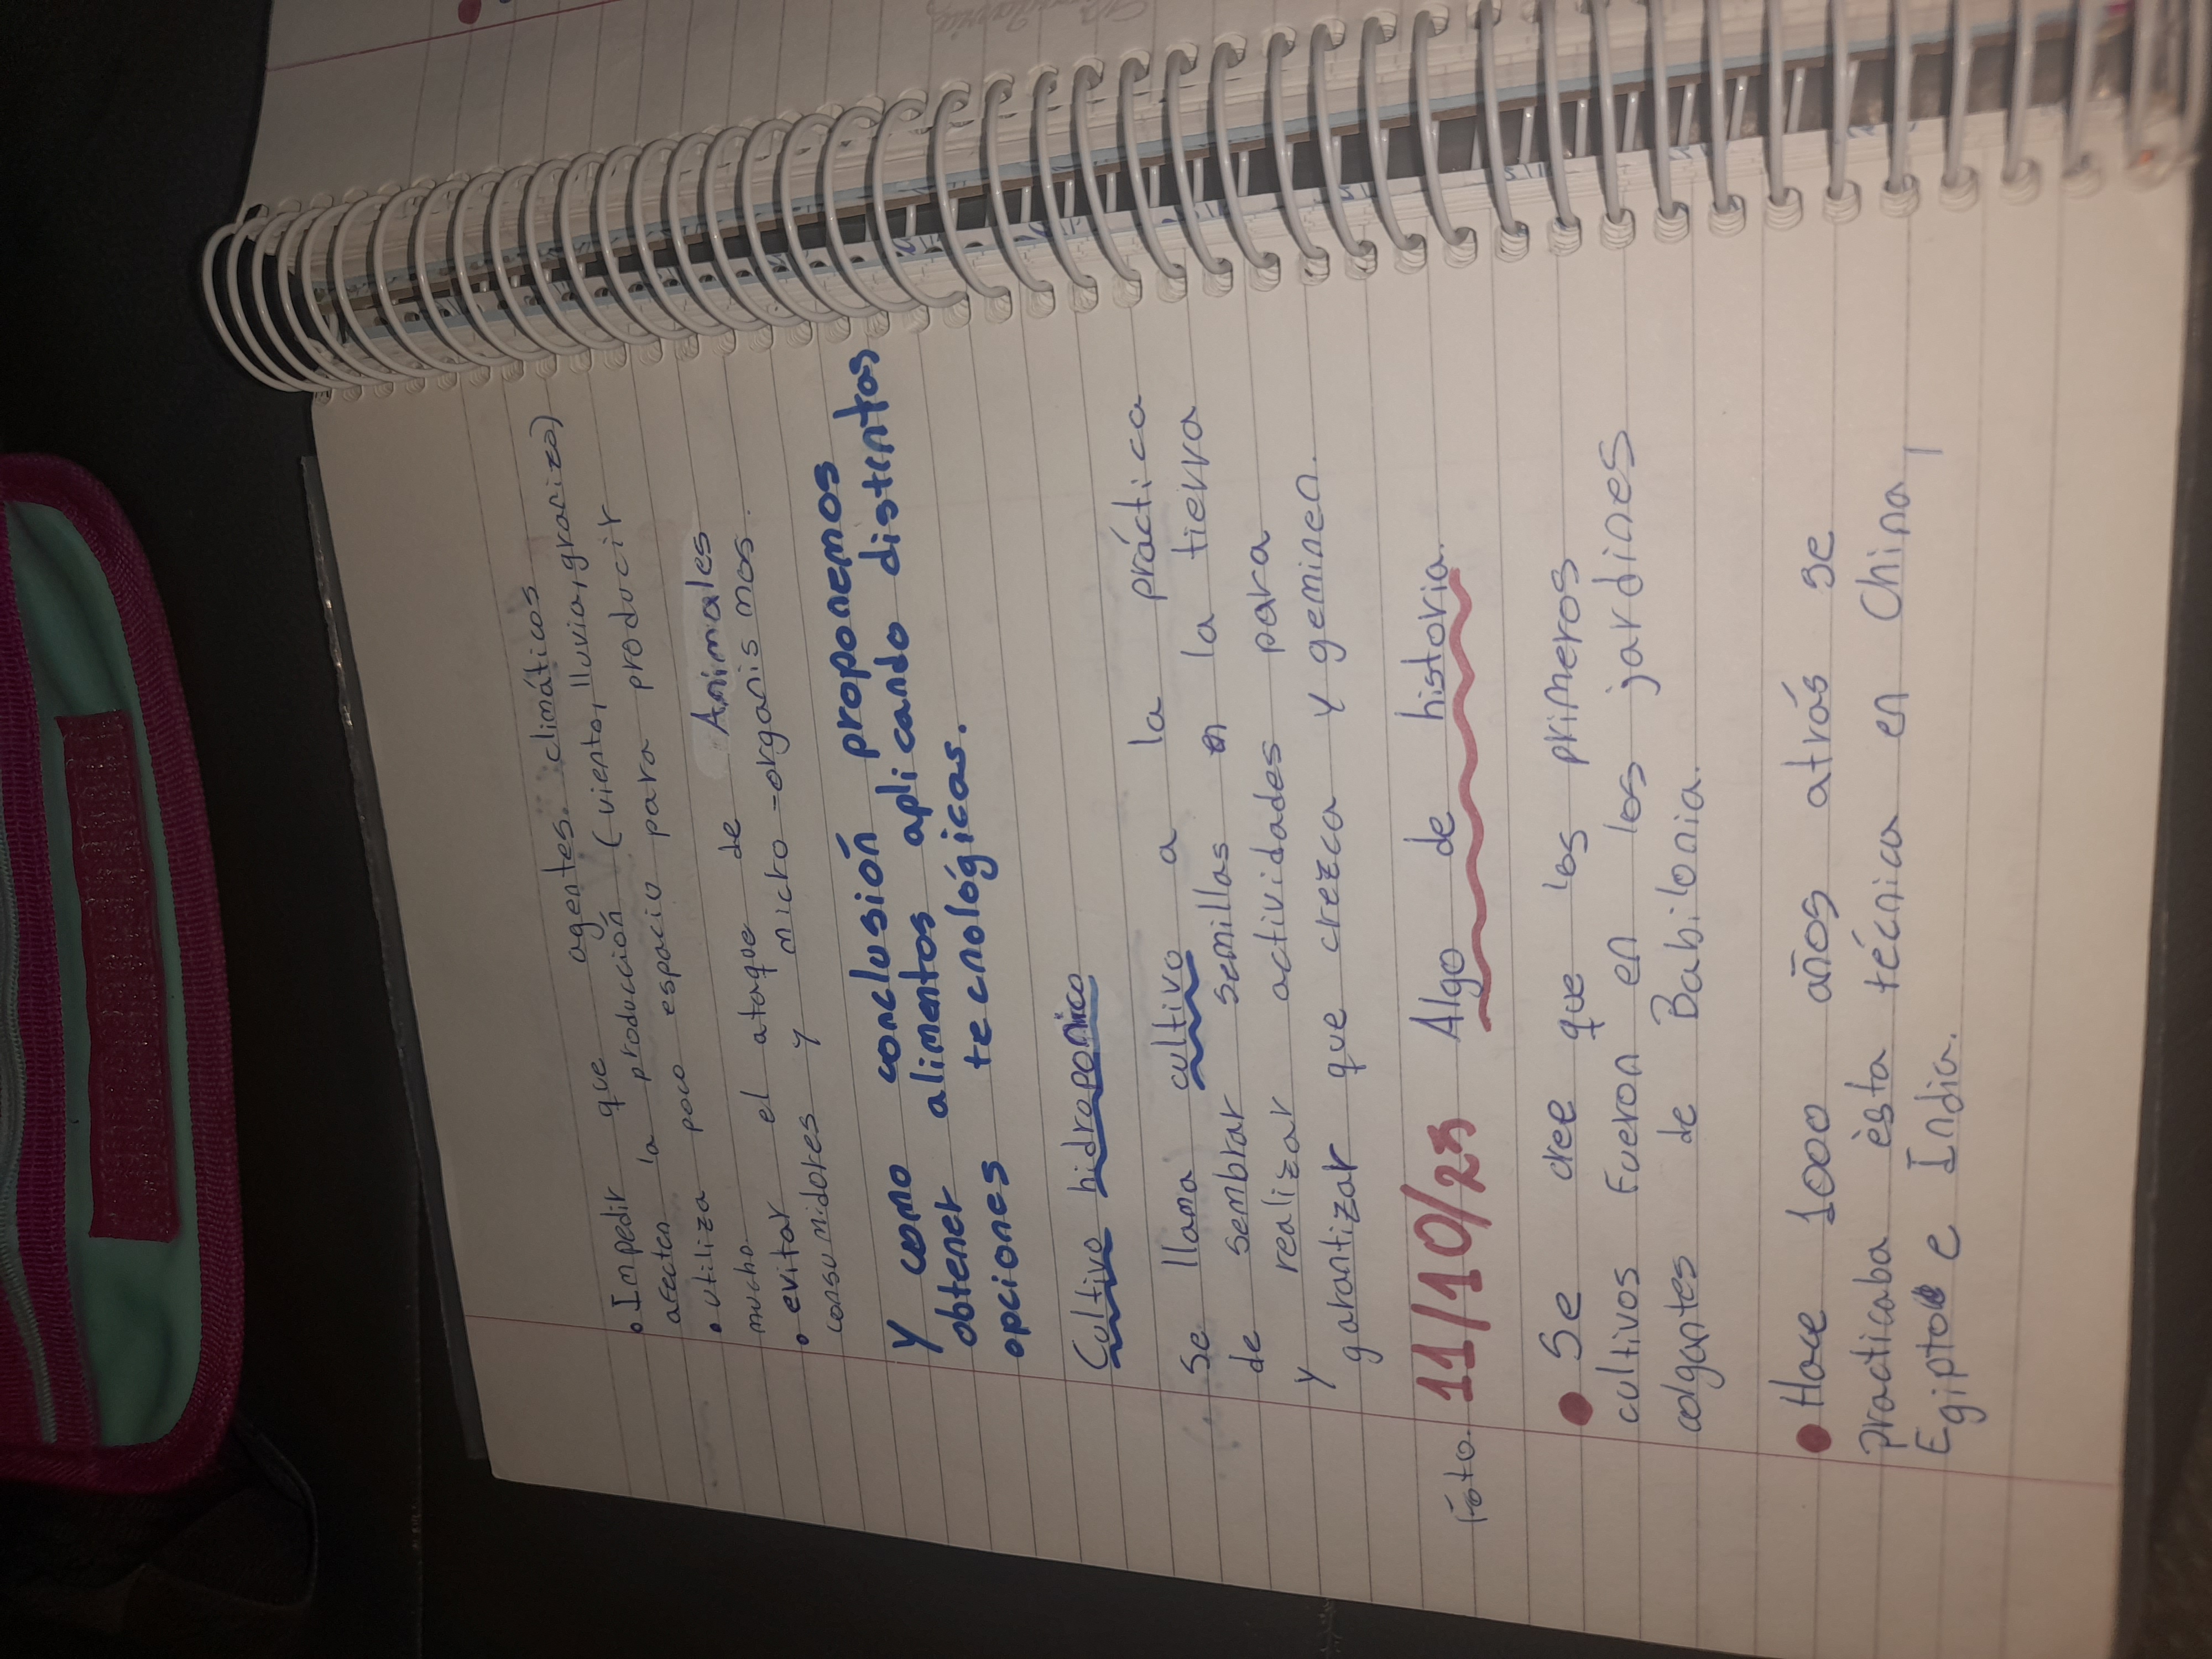 • Impedir que agentes climáticos
afecten la producción (viento, lluvia, granizo)
• utiliza poco espacio para producir
mucho.
• evitar el ataque de Animales
consumidores y micro-organismos.
Y como conclusión proponemos
obtener alimentos aplicando distentas
opciones tecnológicas.
Cultivo hidroponico
Se llama cultivo a la práctica
de sembrar semillas en la tierra
y realizar actividades para
garantizar que crezca y geminen.
Foto. 11/10/23 Algo de historia.
• Se cree que los primeros
cultivos Fueron en los jardines
colgantes de Babilonia.
• Hace 1000 años atrás se
practicaba èsta técnica en China,
Egipto e India.